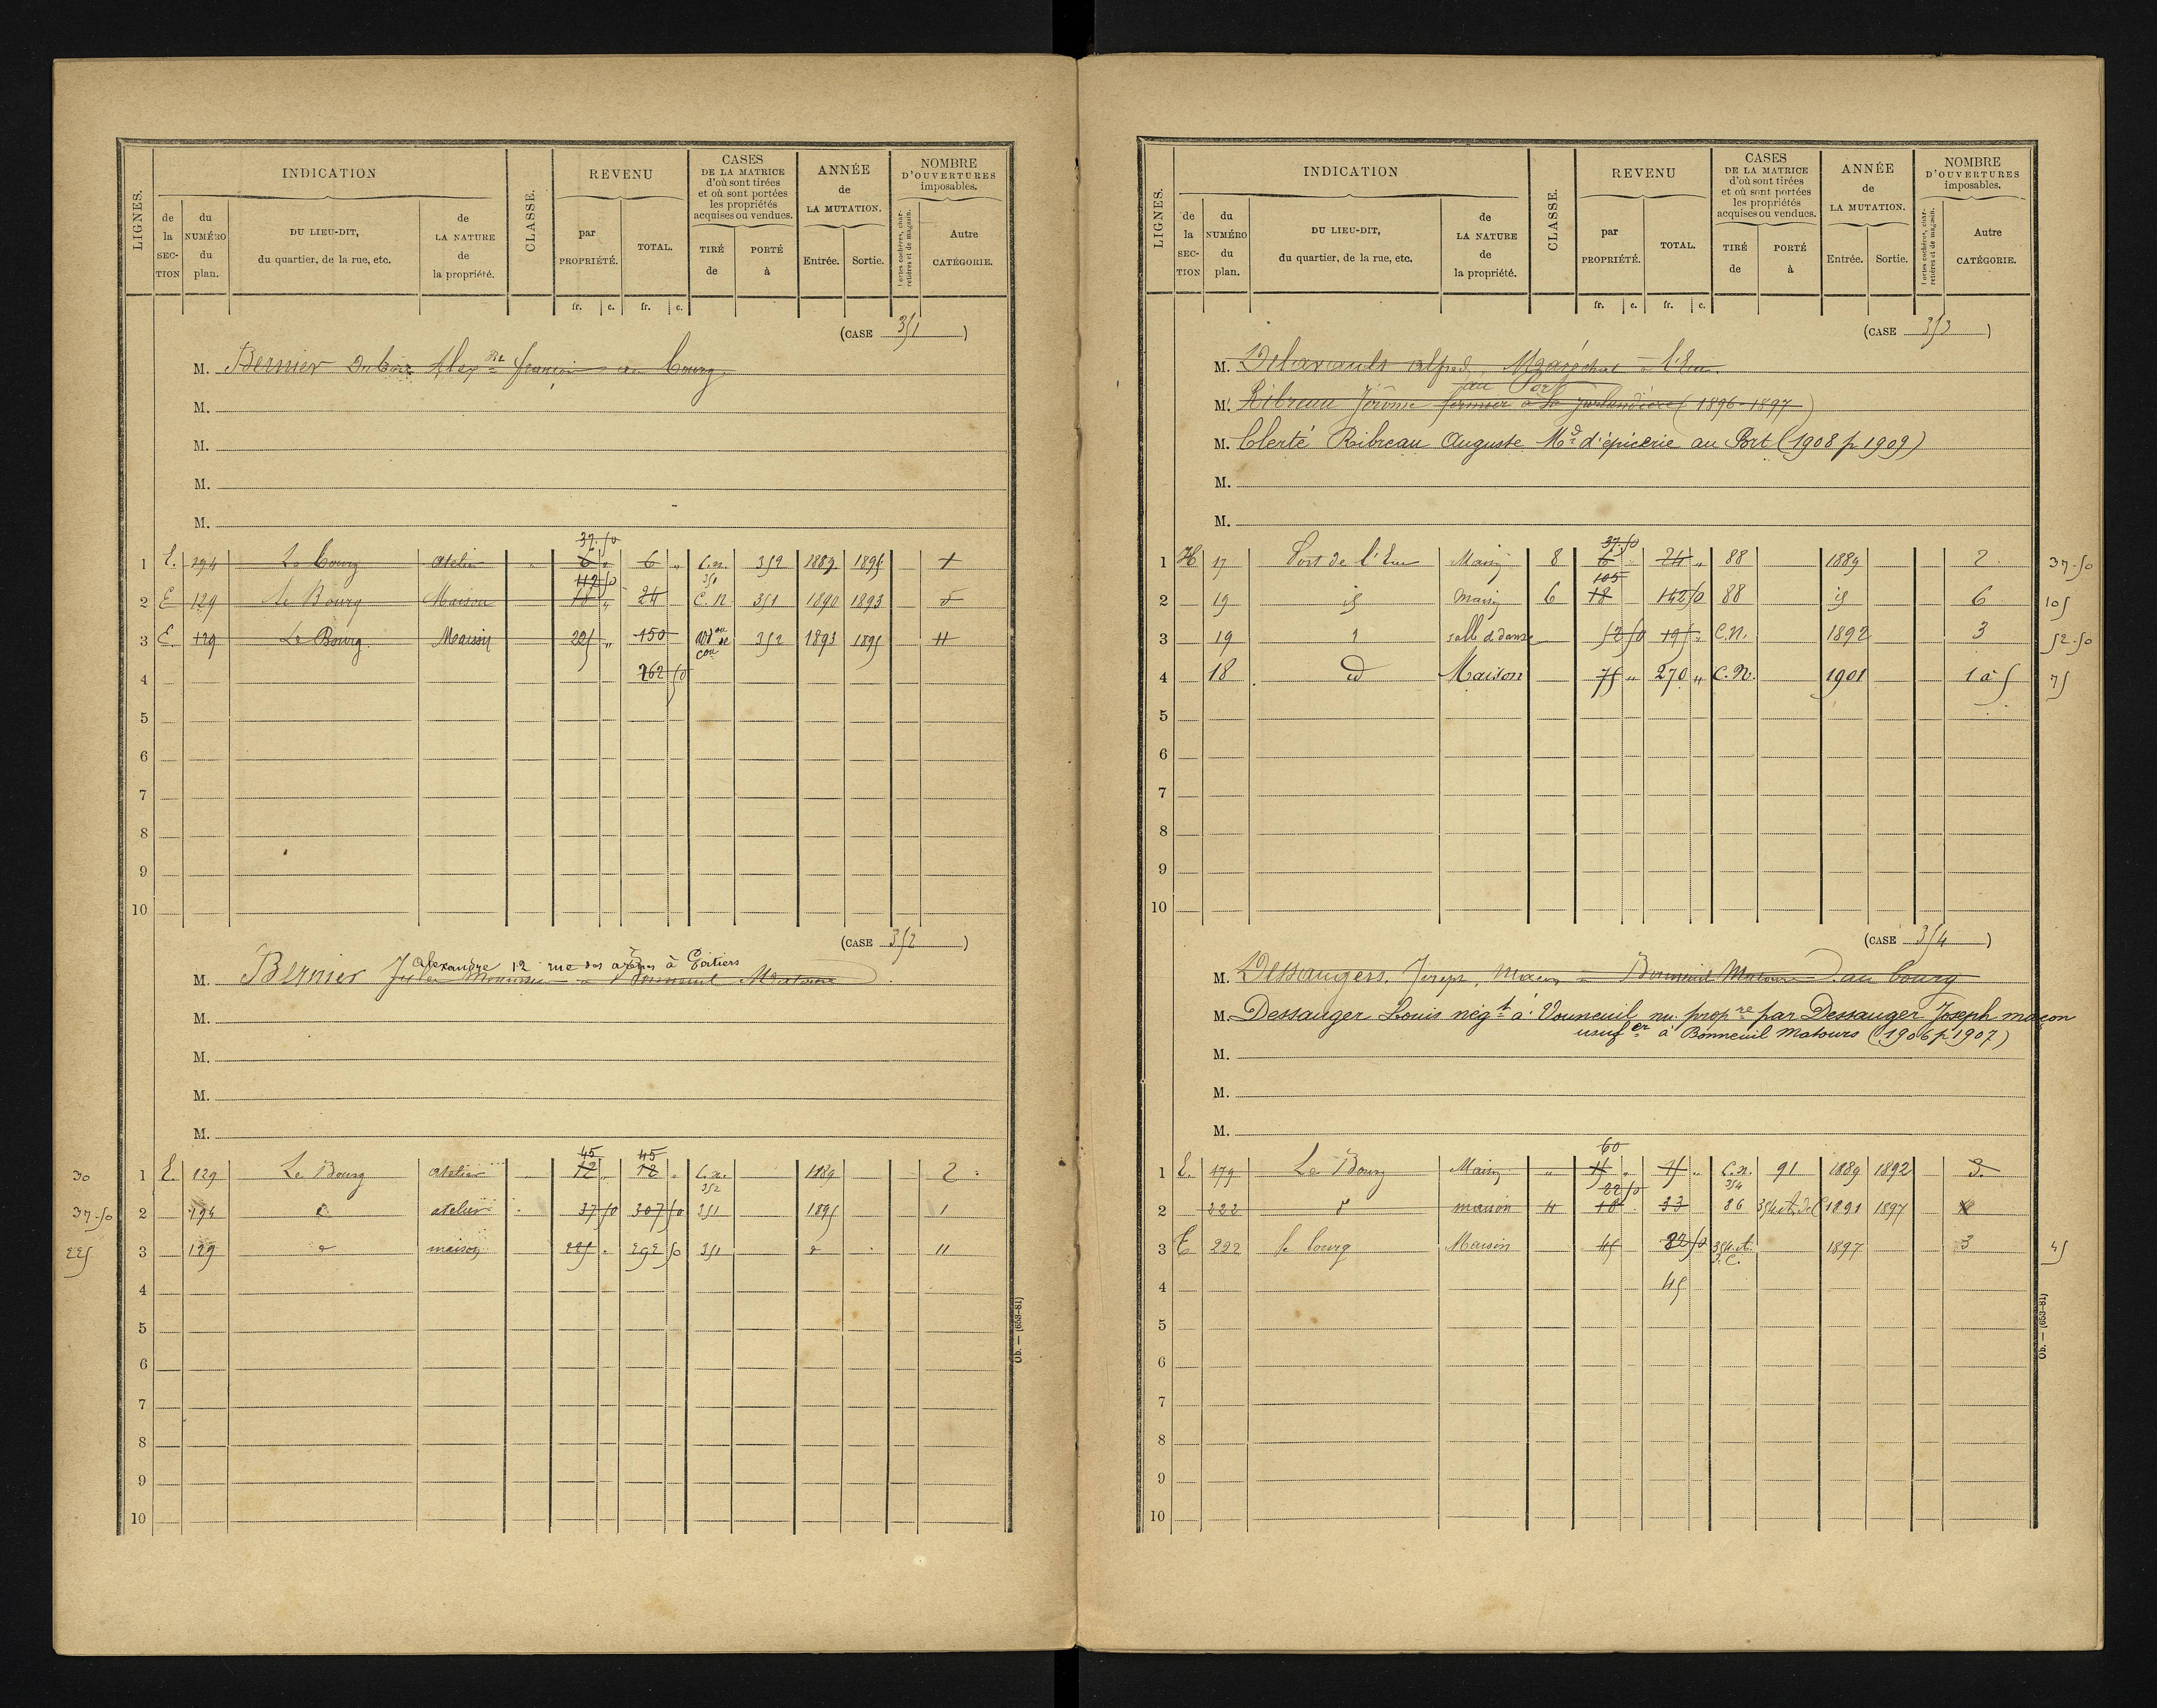 LIGNES. INDICATION CLASSE. REVENU CASES DE LA MATRICE d'où sont tirées et où sont portées les propriétés acquises ou vendues. ANNÉE de LA MUTATION. NOMBRE D'OUVERTURES imposables.
de la SECTION du NUMÉRO du plan. DU LIEU-DIT, du quartier, de la rue, etc. de LA NATURE de la propriété. par PROPRIÉTÉ. TOTAL. TIRÉ de PORTÉ à Entrée. Sortie. Portes cochères, charretières et de magasin. Autre CATÉGORIE.
fr. c. fr. c.
(CASE 351)
M. Bernier Alexdre françois au bourg
M.
M.
M.
M.
37 50
1 E. 194 Le bourg atelier " 6 " 6 " C.n. 352 1889 1895 1
112 50 351
2 E 129 Le Bourg Maison 18 " 24 C. N 351 1890 1893 5
3 E 129 Le Bourg Maison 225 " 150 352 1893 1895 11
4 262 50
5
6
7
8
9
10
(CASE 352)
Alexandre 12 rue des arènes à Poitiers
M. Bernier Jules à Bonneuil Matours
M.
M.
M.
M.
45 45
30 1 E. 129 Le Bourg atelier " 12 " 12 " C.n. 1889 2
352
37.50 2 194 d atelier 37 50 307 50 351 1895 1
225 3 129 d maison 225 292 50 351 d 11
4
5
6
7
8
9
10
Ob. — (653-81)
LIGNES. INDICATION CLASSE. REVENU CASES DE LA MATRICE d'où sont tirées et où sont portées les propriétés acquises ou vendues. ANNÉE de LA MUTATION. NOMBRE D'OUVERTURES imposables.
de la SECTION du NUMÉRO du plan. DU LIEU-DIT, du quartier, de la rue, etc. de LA NATURE de la propriété. par PROPRIÉTÉ. TOTAL. TIRÉ de PORTÉ à Entrée. Sortie. Portes cochères, charretières et de magasin. Autre CATÉGORIE.
fr. c. fr. c.
(CASE 353)
M. Delavault alfred, Maréchal à l'Eu
au Port
M. Ribreau Jérôme fermier à la (1896-1897)
M. Clerté Ribreau Auguste Md d'épicerie au Port (1908 p 1909)
M.
M.
37.50
1 H 17 Port de l'Eu Maison 8 6 " 24 " 88 1889 2 37.50
105
2 19 id Maison 6 18 142 50 88 id 6 105
3 19 d salle d. danse 52 50 195 " C.N. 1892 3 52.50
4 18 d Maison 75 " 270 " C.N. 1901 1 à 5 75
5
6
7
8
9
10
(CASE 354)
M. Dessaugers. Joseph, Maçon à Bonneuil Matours au bourg
M. Dessauger Louis négt à Vouneuil nu propre par Dessauger Joseph maçon
usufer à Bonneuil Matours (1906 p 1907)
M.
M.
M.
60
1 E. 179 Le Bourg Maison " 15 " 15 " C.n. 91 1889 1892 3
22 50 354
2 222 d maison 4 18 33 86 354 1891 1897
3 E 222 le bourg Maison 45 22 50 354 1897 3 45
4 45
5
6
7
8
9
10
Ob. — (653-81)